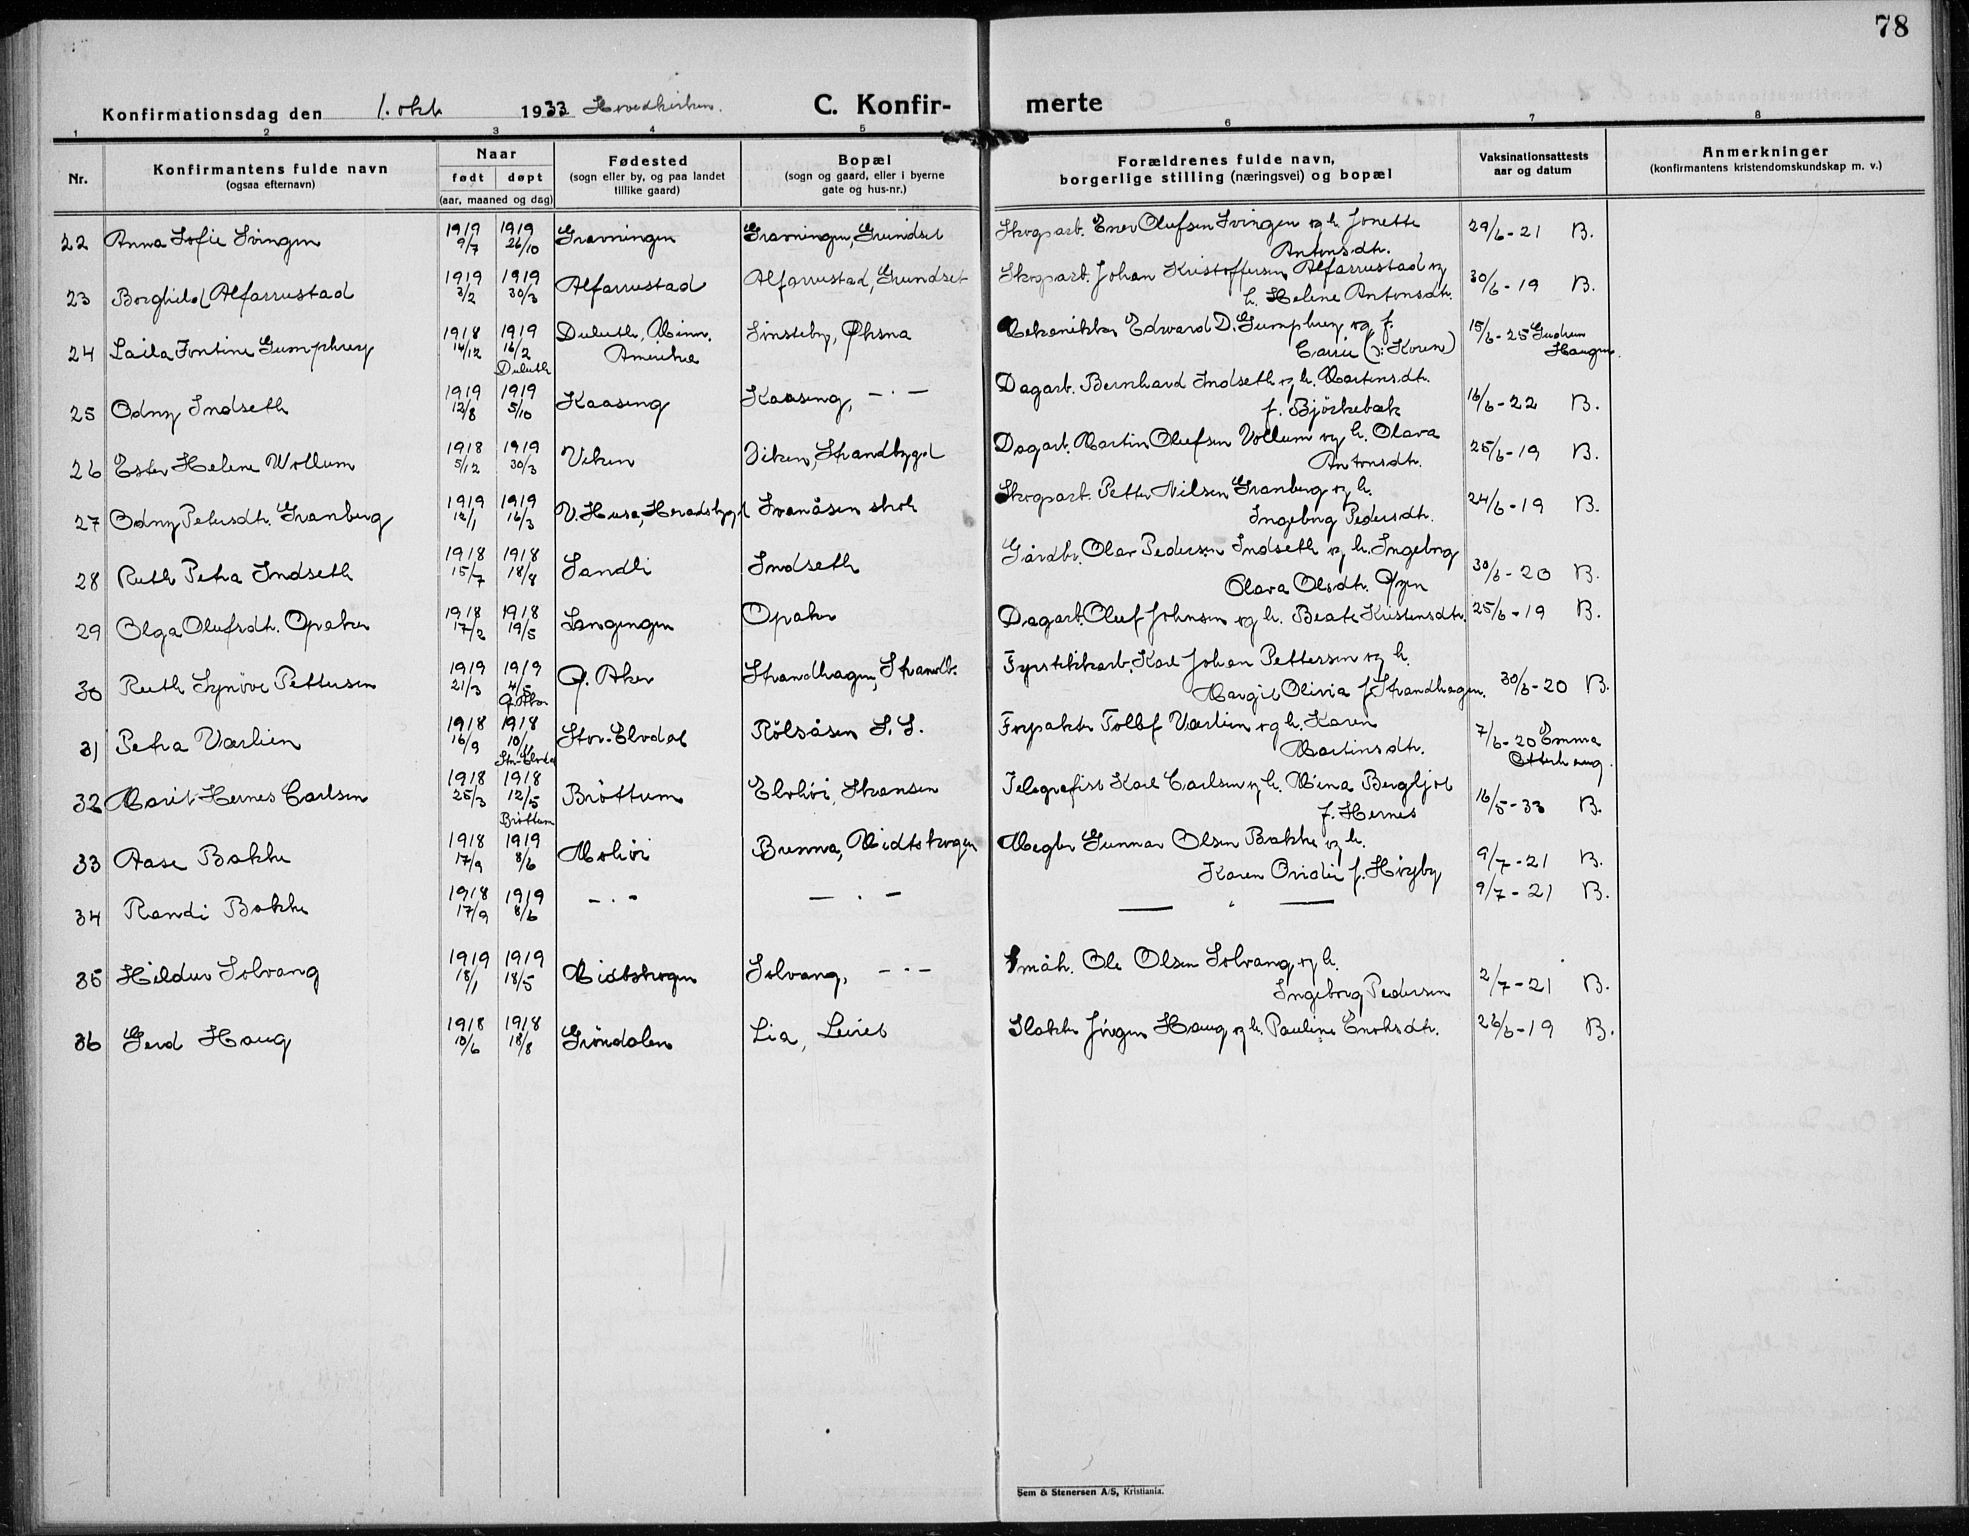 78
Konfirmationsdag den 1. okt. 1933 Hovedkirken. C. Konfir- merte
1 2 3 4 5 6 7 8
Nr.
Konfirmantens fulde navn
(ogsaa efternavn)
Naar
født døpt
(aar, maaned og dag)
Fødested
(sogn eller by, og paa landet
tillike gaard)
Bopæl
(sogn og gaard, eller i byerne
gate og hus-nr.)
Forældrenes fulde navn,
borgerlige stilling (næringsvei) og bopæl
Vaksinationsattests
aar og datum
Anmerkninger
(konfirmantens kristendomskundskap m. v.)
22 Anna Sofie Svingen 1919 9/7 1919 26/10 Gravningen Gravningen, Grundset Skogsarb. Ener Olufsen Svingen og h. Jonette
Antonsdtr. 29/6-21 B.
23 Borghild Alfarrustad 1919 3/2 1919 30/3 Alfarrustad Alfarrustad, Grundset Skogsarb. Johan Kristoffersen Alfarrustad og
h. Helene Antonsdtr. 30/6-19 B.
24 Laila Jontine Gumphrey 1918 14/12 1919 16/2 Duluth Duluth, Minn.
Amerika Sinsteby, Øksna Mekanikker Edward D. Gumphrey og f.
Carrie (ɔ: Koren) 15/6-25 Gudrun
Haugen.
25 Odny Indseth 1919 12/8 1919 5/10 Kaasing Kaasing, -·- Dagarb. Bernhard Indseth og h. Martinsdtr.
f. Bjørkebæk 16/6-22 B.
26 Ester Helene Wollum 1918 5/12 1919 30/3 Viken Viken, Strandbygd Dagarb. Martin Olufsen Vollum og h. Olava
Antonsdtr. 25/6-19 B.
27 Odny Petersdtr. Granberg 1919 12/1 1919 16/3 V. Husa, Heradsbygd Svanåsen skole Skogsarb. Petter Nilsen Granberg og h.
Ingeborg Pedersdtr. 24/6-19 B.
28 Ruth Petra Indseth 1918 15/7 1918 18/8 Sandli Indseth Gårdbr. Olav Pedersen Indseth og h. Ingeborg
Olava Olsdtr. Øyen 30/6-20 B.
29 Olga Olufsdtr. Opaker 1918 17/2 1918 19/5 Langengen Opaker Dagarb. Oluf Johnsen og h. Beate Kristensdtr. 25/6-19 B.
30 Ruth Synøve Pettersen 1919 21/3 1919 4/5 Ø. Aker Ø. Aker Strandhagen, Strandb. Fyrstikkarb. Karl Johan Pettersen og h.
Margit Olivia f. Strandhagen. 30/6-20 B.
31 Petra Værlien 1918 16/9 1918 10/11 Stor-Elvdal Stor-Elvdal Rölsåsen S. S. Forpakter Tollef Værlien og h. Karen
Martinsdtr. 7/6-20 Emma
Otterhaug.
32 Marit Hernes Carlsen 1918 25/3 1918 12/5 Brøttum Brøttum Elvhöi, Skansen Telegrafist Karl Carlsen og h. Mina Bergljot
f. Hernes 16/5-33 B.
33 Aase Bakke 1918 17/9 1919 8/6 Mohöi Brenna, Midtskogen Megler Gunnar Olsen Bakke og h.
Karen Ovidie f. Høyby 9/7-21 B.
34 Randi Bakke 1918 17/9 1919 8/6 -·- -·- -"- 9/7-21 B.
35 Hildur Solvang 1919 18/1 1919 18/5 Midtskogen Solvang, -·- Småbr. Ole Olsen Solvang og h.
Ingeborg Pedersen 2/7-21 B.
36 Gerd Haug 1918 10/6 1918 18/8 Gröndalen Lia, Leiret Slakter Jörgen Haug og h. Pauline Enoksdtr. 26/6-19 B.
Sem & Stenersen A/S, Kristiania.